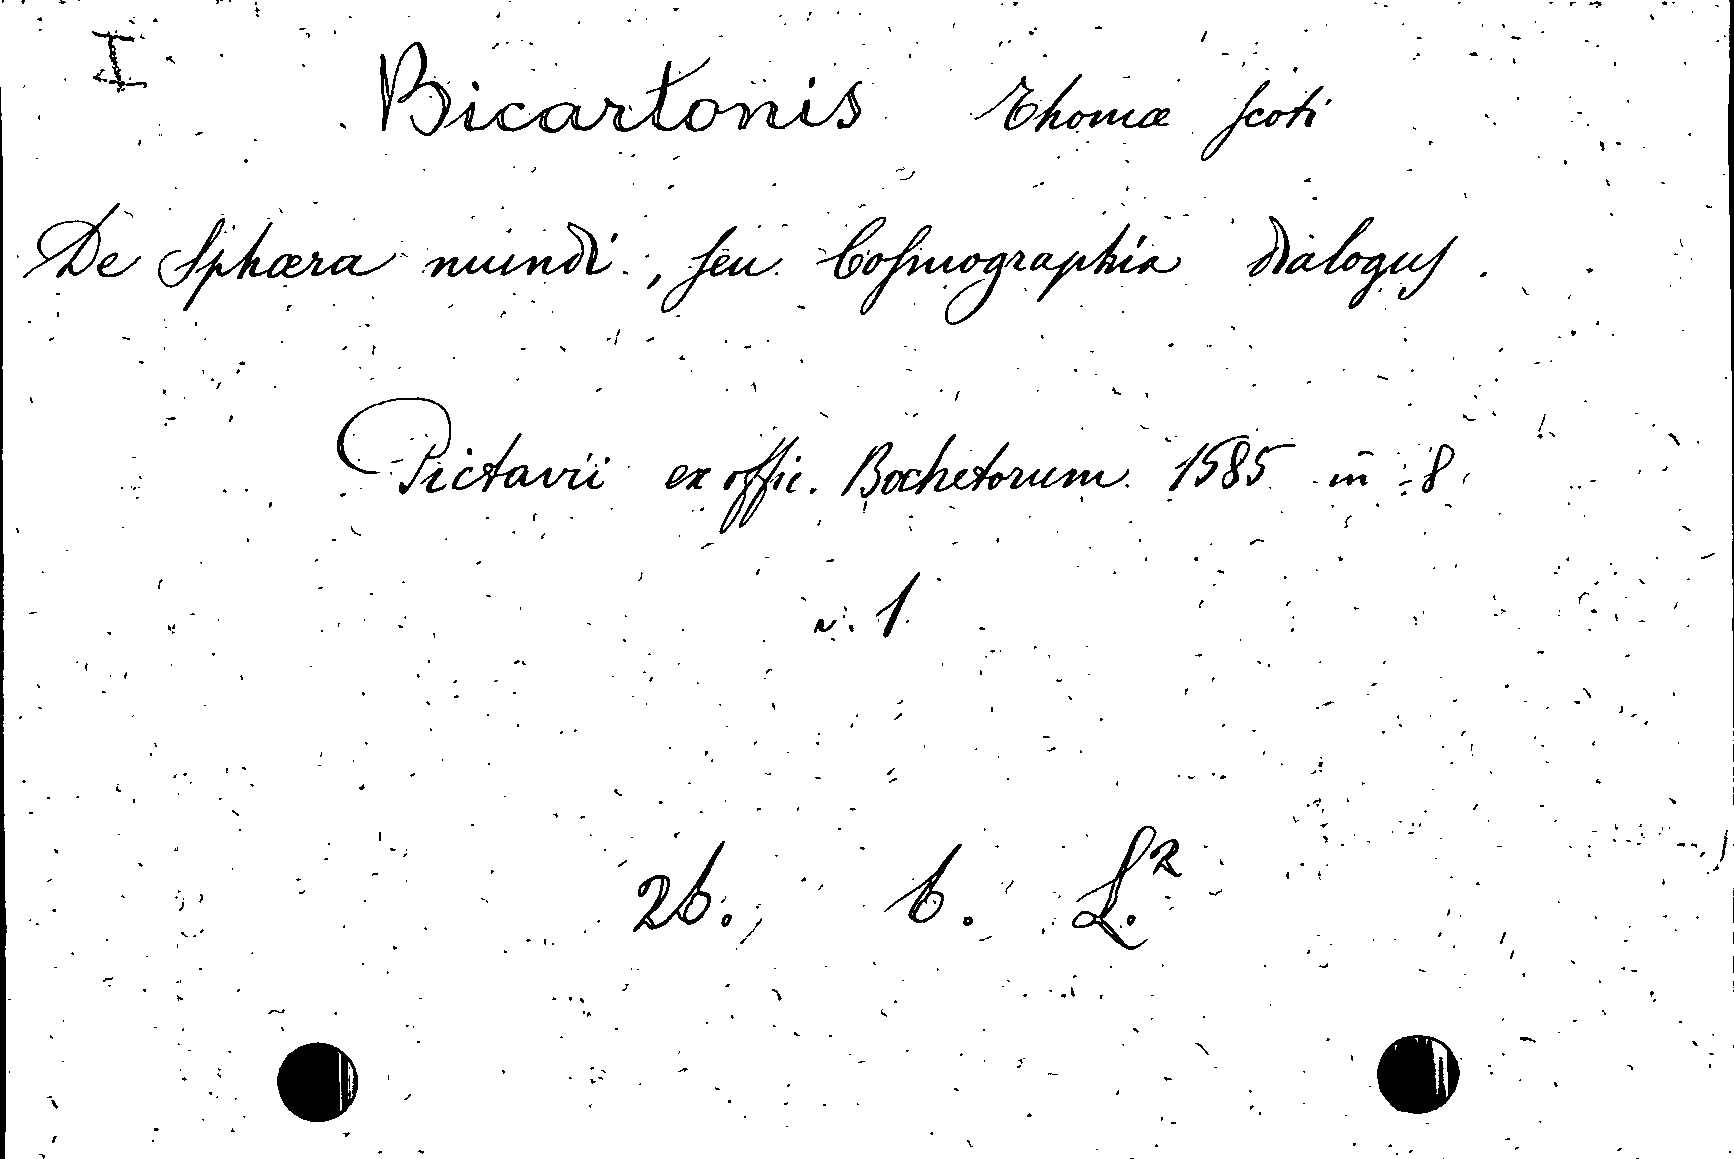 I
Bicartonis Thomæ Scoti
De Sphæra mundi, seu Cosmographia dialogus.
Pictavii ex offic. Bochetorum 1585 in 8
v. 1
26. 6. L.²